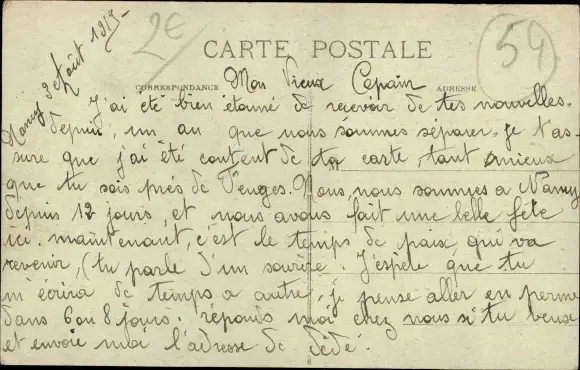 Nancy 3 Août 1919
2€
59
CARTE POSTALE
CORRESPONDANCE
ADRESSE
Mon Vieux Copain
J'ai été bien étonné de recevoir de tes nouvelles.
depuis, un an que nous sommes séparer. je t'as-
sure que j'ai été content de ta carte, tant mieux
que tu sois près de Nous, nous sommes a Nancy
depuis 12 jours, et nous avons fait une belle fête
ici. maintenant, c'est le temps de paix qui va
revenir, (tu parle d'un sourire. J'espère que tu
m'écrira de temps a autre, je pense aller en perme
dans 6 ou 8 jours. réponds moi chez nous si tu veux
et envoie moi l'adresse de dédé.